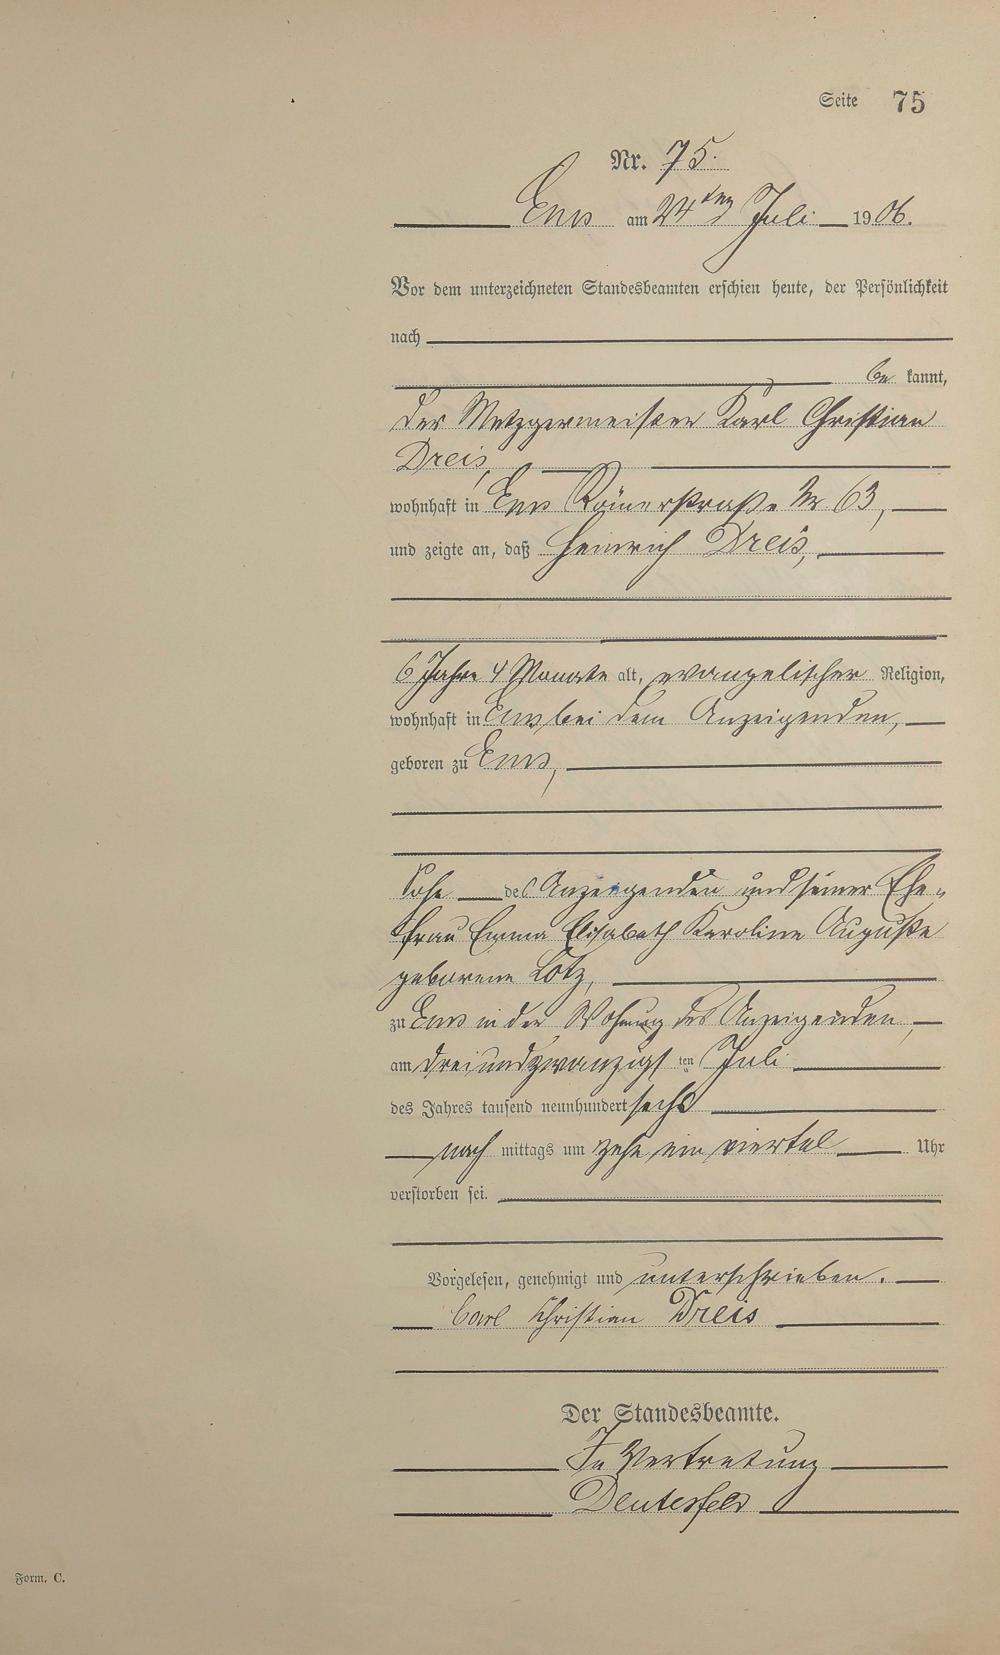 Seite 75
Nr. 75.
Ems am 24ten Juli 1906.
Vor dem unterzeichneten Standesbeamten erschien heute, der Persönlichkeit
nach
be kannt,
der Metzgermeister Karl Christian
Dreis,
wohnhaft in Ems Römerstraße Nr 63,
und zeigte an, daß Heinrich Dreis,
6 Jahre 4 Monate alt, evangelischer Religion,
wohnhaft in Ems bei dem Anzeigenden,
geboren zu Ems,
Sohn des Anzeigenden und seiner Ehe-
frau Emma Elisabeth Karoline Auguste
geborene Lotz,
zu Ems in der Wohnung des Anzeigenden,
am dreiundzwanzigsten Juli
des Jahres tausend neunhundert sechs
nach mittags um zehn ein viertel Uhr
verstorben sei.
Vorgelesen, genehmigt und unterschrieben.
Carl Christian Dreis
Der Standesbeamte.
In Vertretung
Form. C.